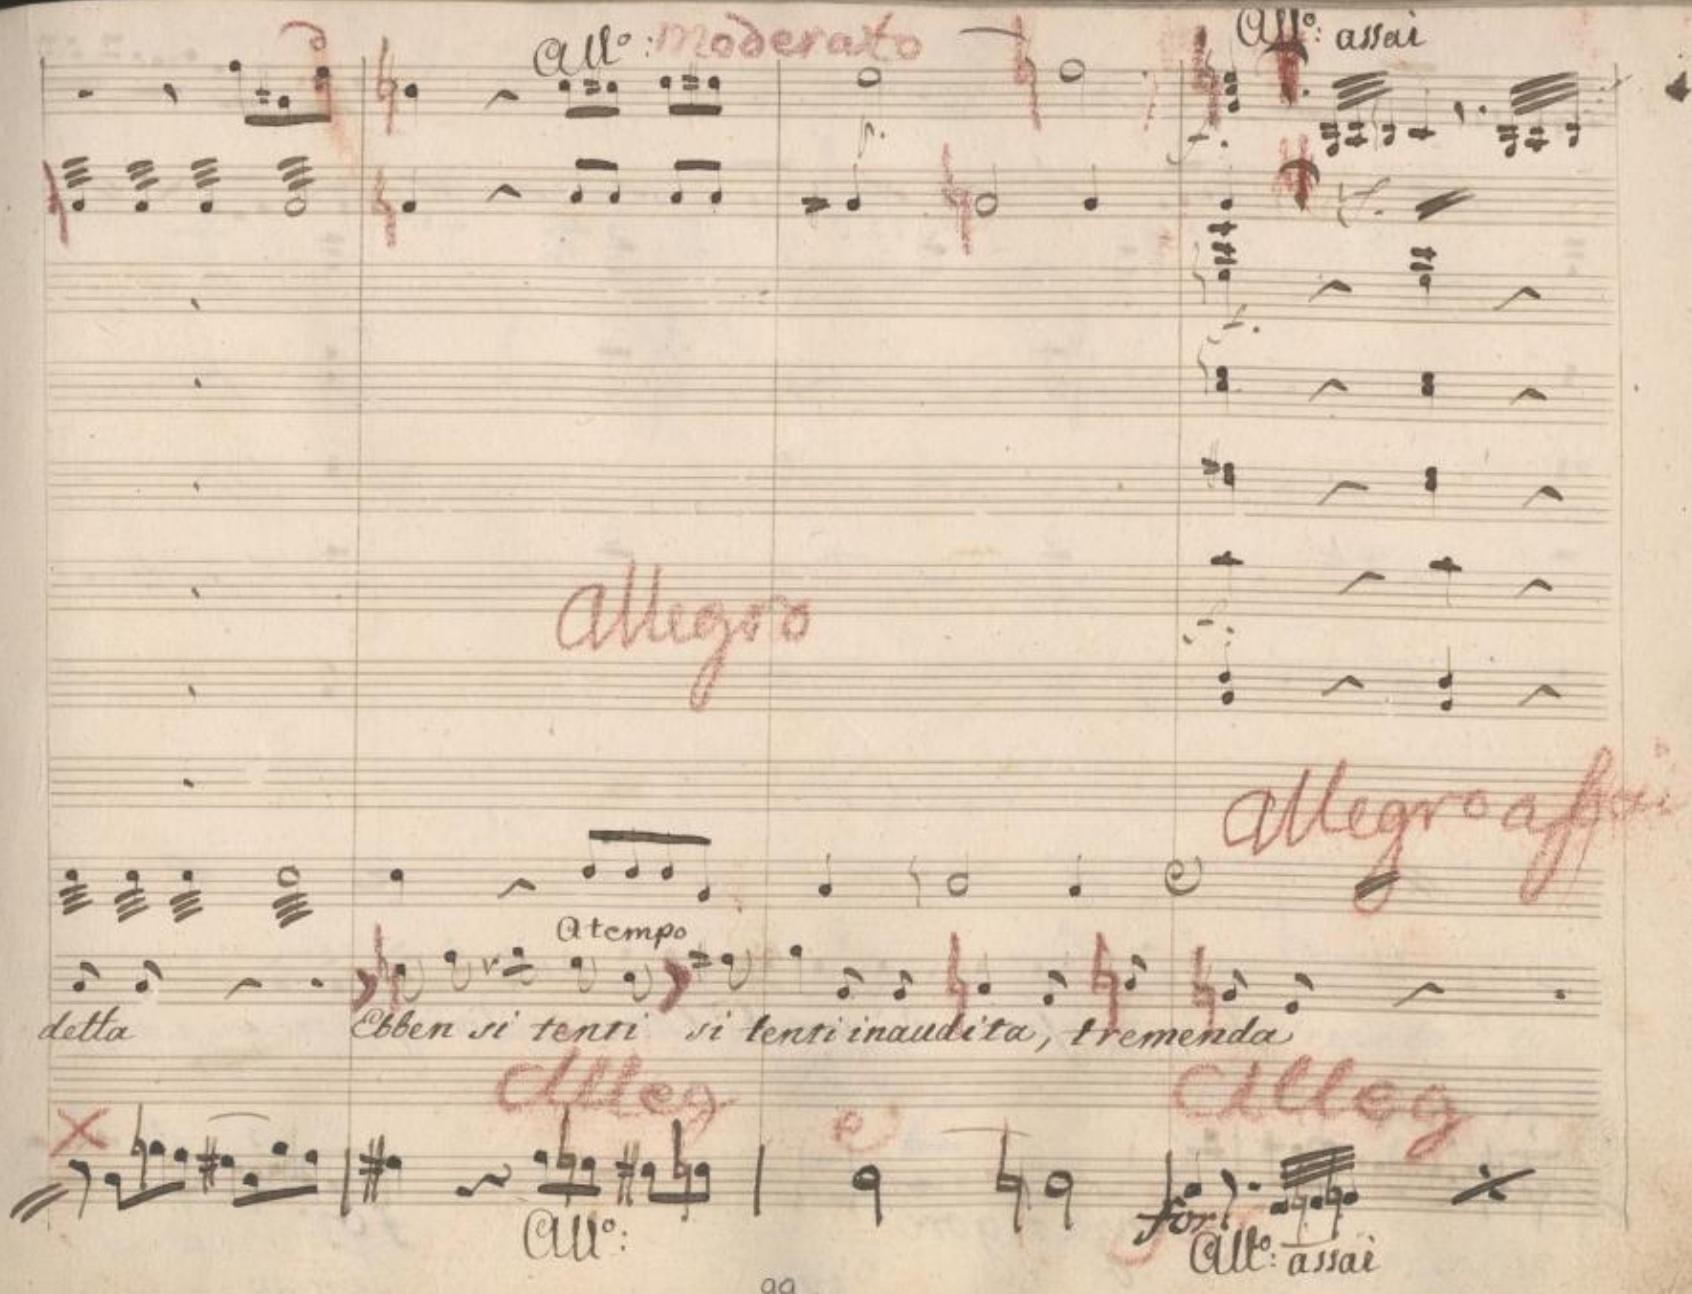 All°: moderato All°: assai
f. f.
f.
Allegro
f.
Allegro assai
a tempo
detta Ebben si tenti si tenti inaudita, tremenda
Alleg Alleg
for
All°: All°: assai
99